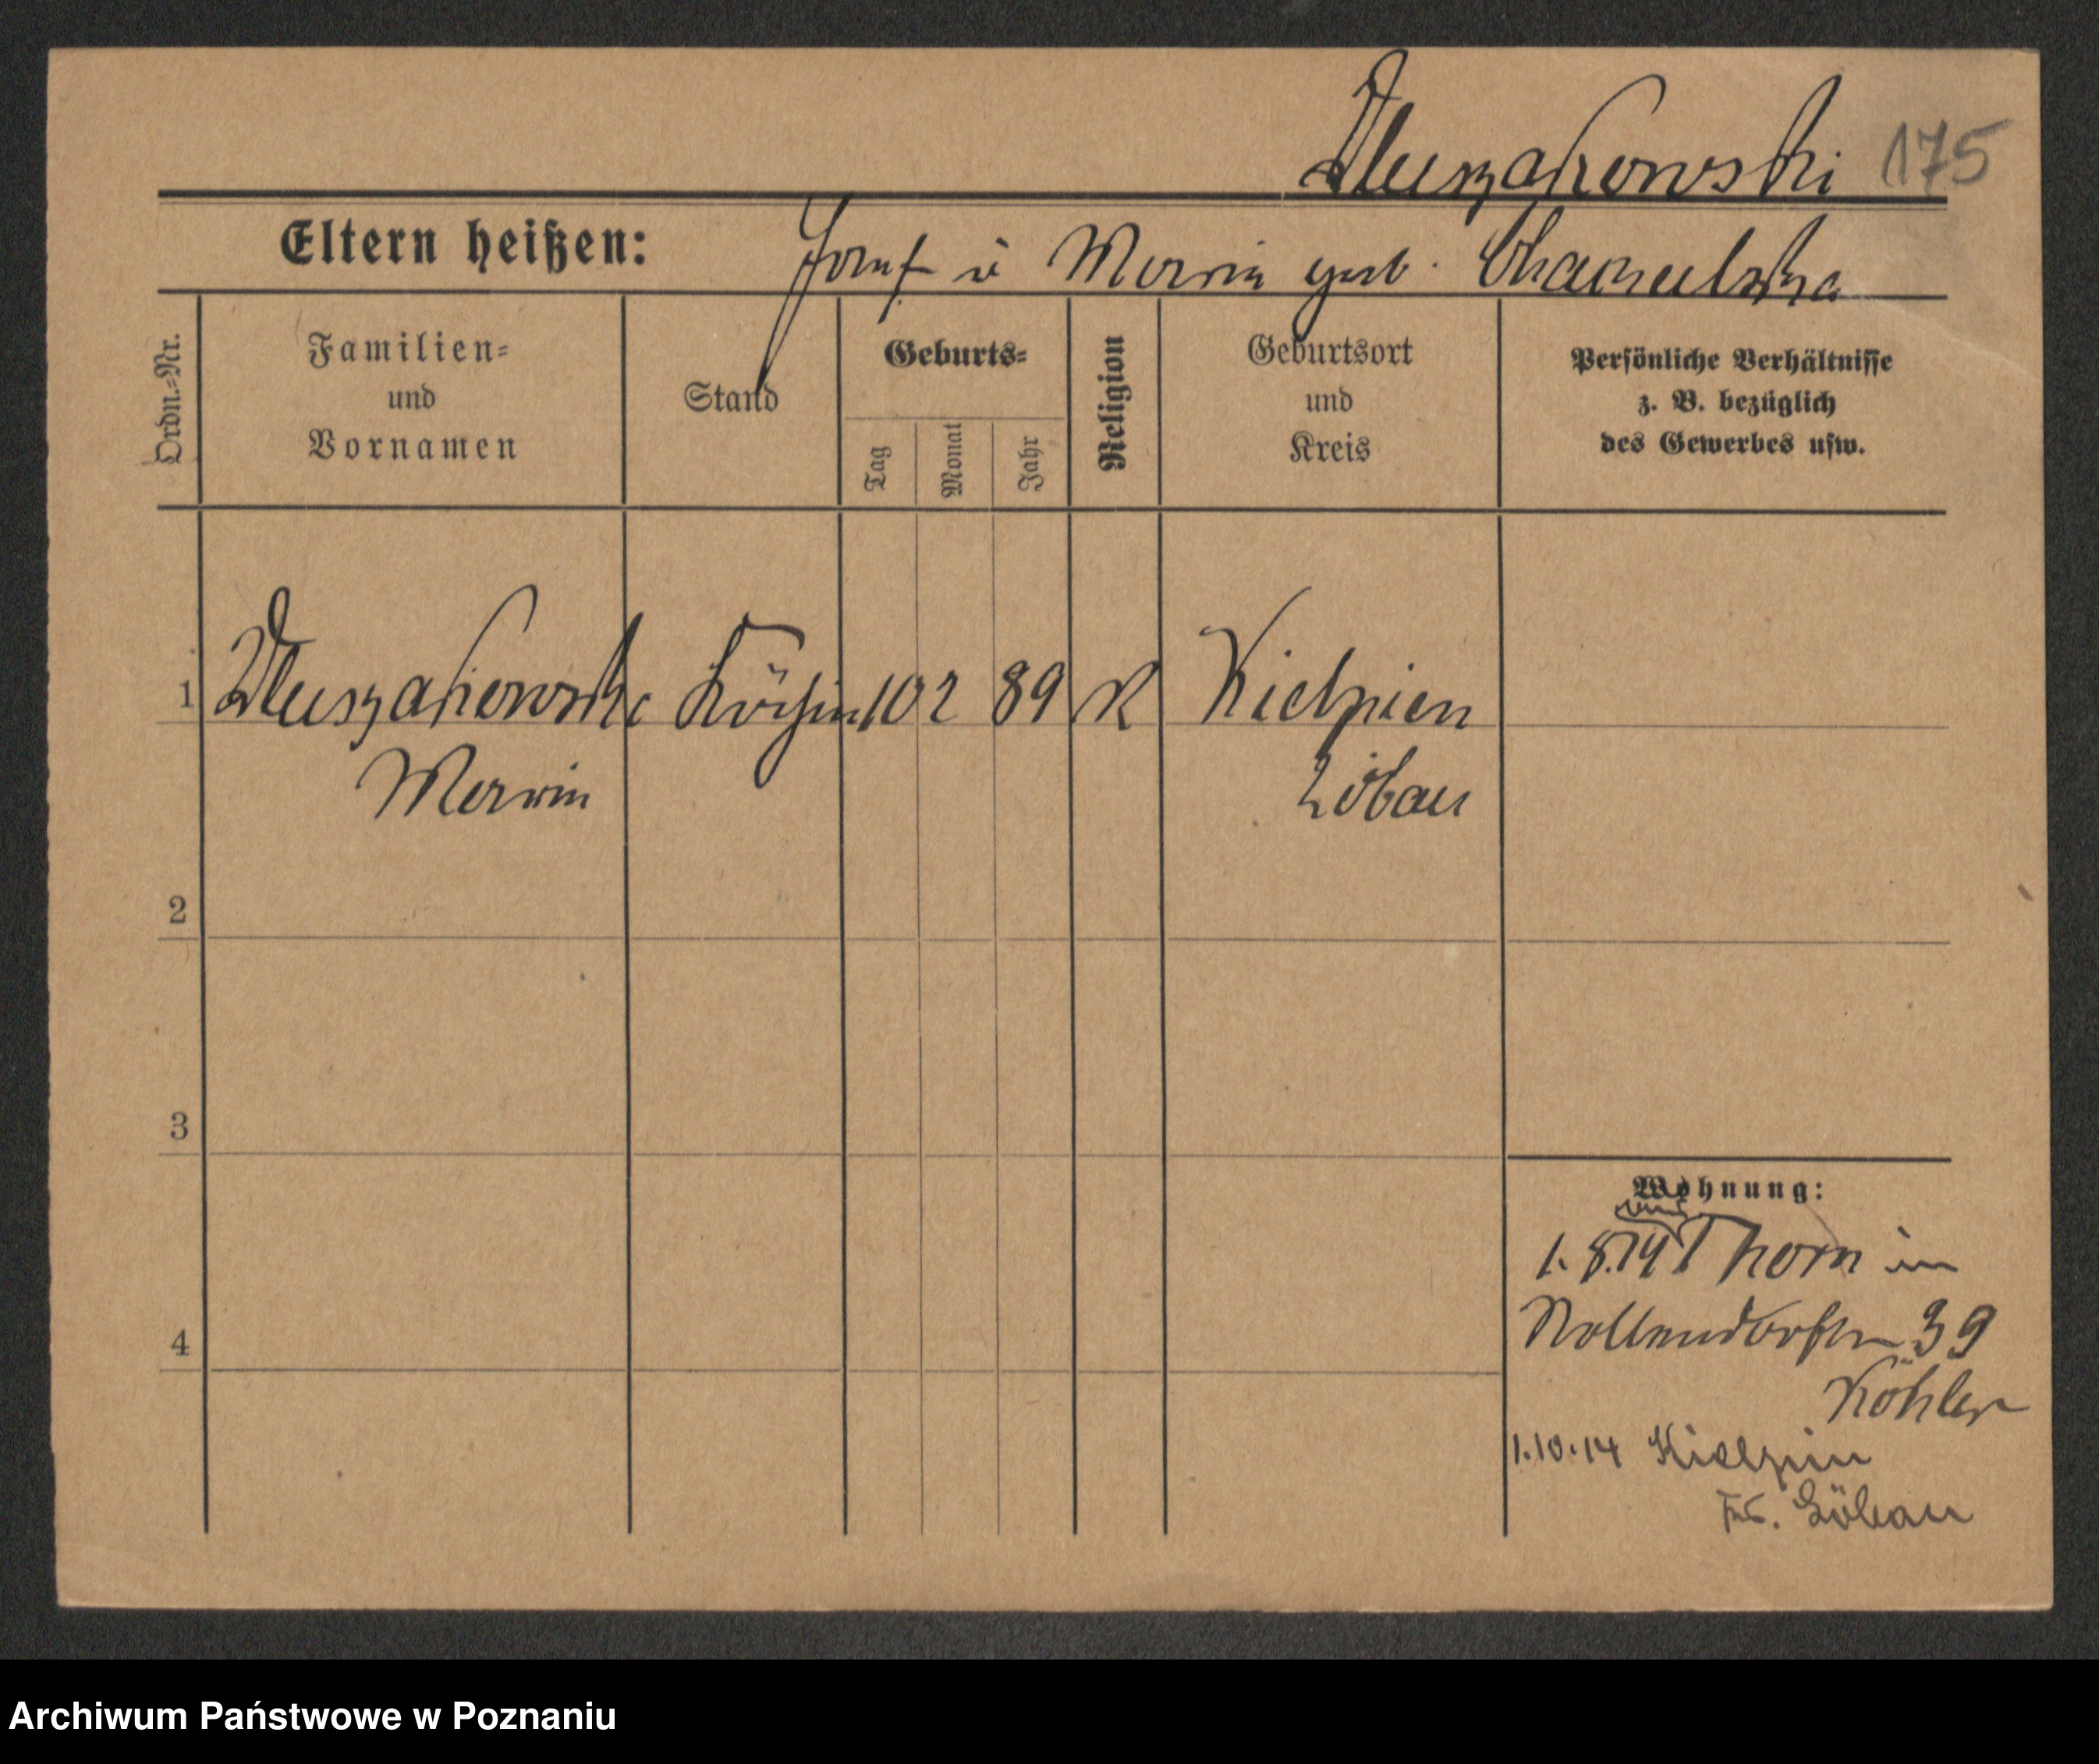 Dluszakowski 175
Eltern heißen: Josef u Maria geb.
Ordn.-Nr.
Familien-
und
Vornamen
Stand
Geburts-
Tag
Monat
Jahr
Religion
Geburtsort
und
Kreis
Persönliche Verhältnisse
z. B. bezüglich
des Gewerbes usw.
1 Dluszakowska Köchin 10 2 89 K Kielpien
Maria Löbau
2
3
4
Wohnung:
1.8.14 Thorn in
Nollendorfstr 39
Köhler
1.10.14 Kielpin
Kr. Löbau
Archiwum Państwowe w Poznaniu